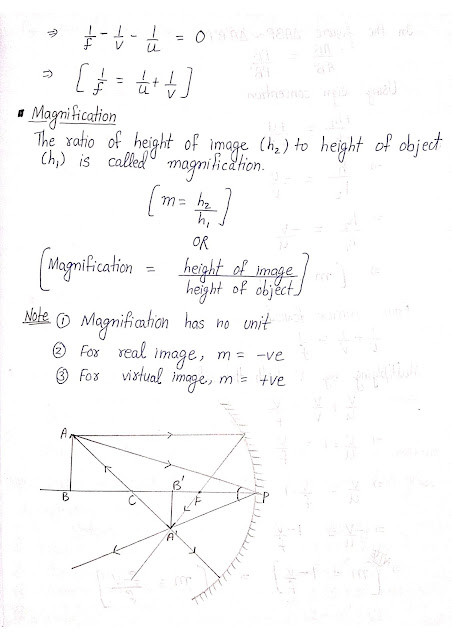 ⇒ 1/f - 1/v - 1/u = 0
⇒ [ 1/f = 1/u + 1/v ]
▪ Magnification
The ratio of height of image (h₂) to height of object
(h₁) is called magnification.
[ m = h₂/h₁ ]
OR
[ Magnification = height of image / height of object ]
Note ① Magnification has no unit
② For real image, m = -ve
③ For virtual image, m = +ve
A
B C B' F P
A'